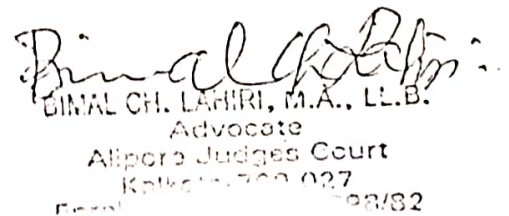 Bimal Ch Lahiri
BIMAL CH. LAHIRI, M.A., LL.B.
Advocate
Alipore Judges Court
Kolkata-700 027
98/82